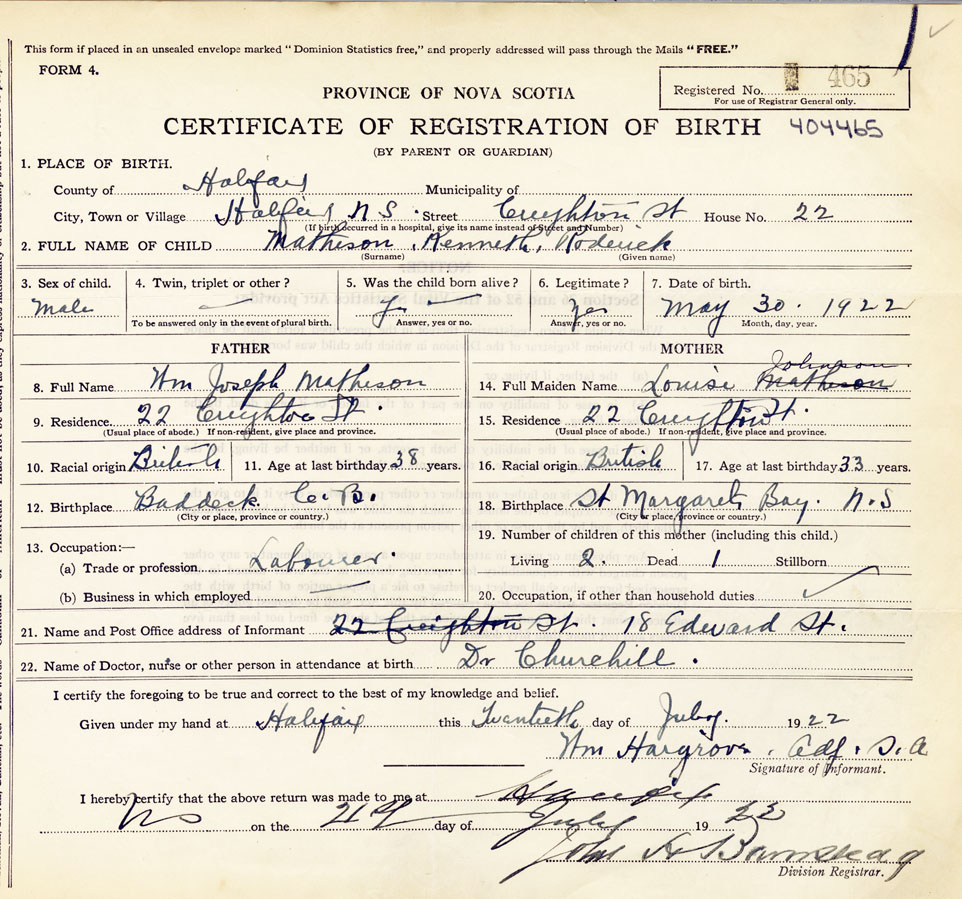 This form if placed in an unsealed envelope marked "Dominion Statistics free," and properly addressed will pass through the Mails "FREE."
FORM 4.
Registered No. 465
For use of Registrar General only.
PROVINCE OF NOVA SCOTIA
CERTIFICATE OF REGISTRATION OF BIRTH 404465
(BY PARENT OR GUARDIAN)
1. PLACE OF BIRTH.
County of Halifax Municipality of
City, Town or Village Halifax N S. Street Creighton St House No. 22
(If birth occurred in a hospital, give its name instead of Street and Number)
2. FULL NAME OF CHILD Matheson, Kenneth, Roderick
(Surname) (Given name)
3. Sex of child. 4. Twin, triplet or other? 5. Was the child born alive? 6. Legitimate? 7. Date of birth.
Male — Yes — Yes May 30. 1922
To be answered only in the event of plural birth. Answer, yes or no. Answer, yes or no. Month, day, year.
FATHER MOTHER
Johnson
8. Full Name Wm Joseph Matheson 14. Full Maiden Name Louise Matheson
9. Residence 22 Creighton St. 15. Residence 22 Creighton St.
(Usual place of abode.) If non-resident, give place and province. (Usual place of abode.) If non-resident, give place and province.
10. Racial origin British 11. Age at last birthday 38 years. 16. Racial origin British 17. Age at last birthday 33 years.
12. Birthplace Baddeck C. B. 18. Birthplace St Margarets Bay. N.S
(City or place, province or country.) (City or place, province or country.)
13. Occupation:— 19. Number of children of this mother (including this child.)
(a) Trade or profession Labourer. Living 2. Dead 1 Stillborn
(b) Business in which employed — 20. Occupation, if other than household duties
21. Name and Post Office address of Informant 22 Creighton St. 18 Edward St.
22. Name of Doctor, nurse or other person in attendance at birth Dr Churchill.
I certify the foregoing to be true and correct to the best of my knowledge and belief.
Given under my hand at Halifax this Twentieth day of July. 1922
Wm Hargrove. Adj. S. A
Signature of Informant.
I hereby certify that the above return was made to me at Halifax
NS on the 21st day of July 1922
John A Barnstead
Division Registrar.